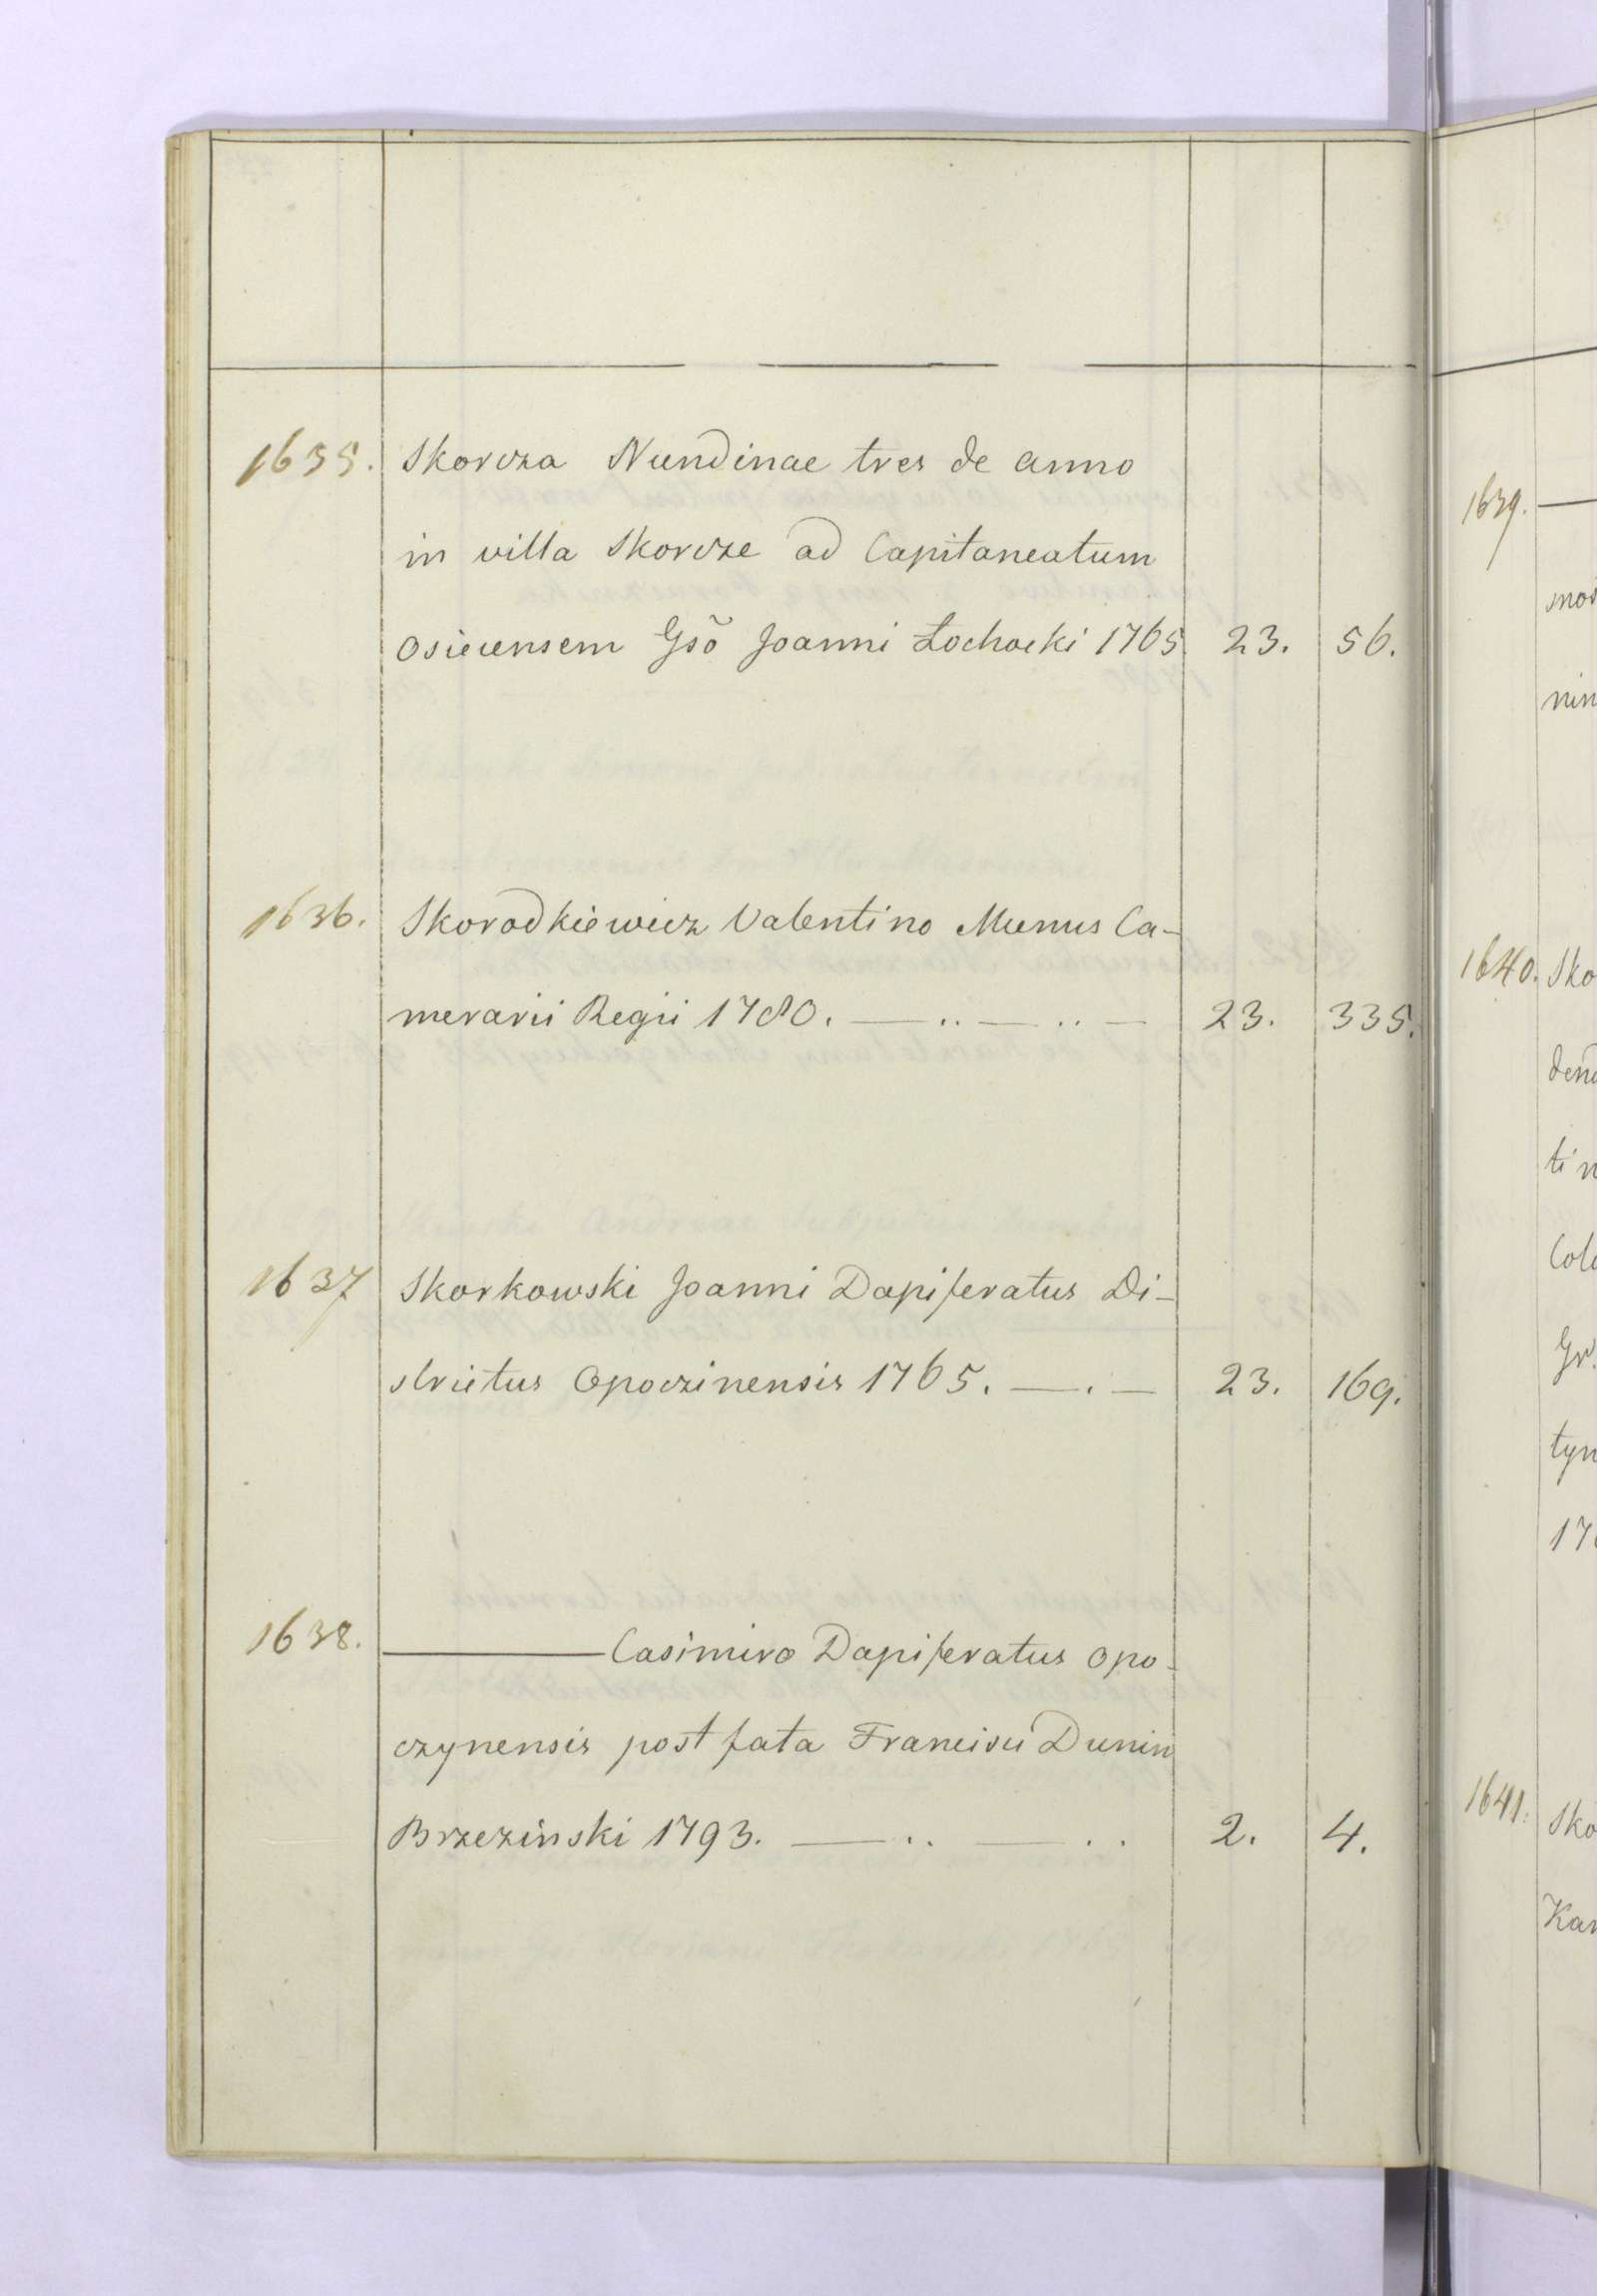 1635. Skorcza Nundinae tres de anno
in villa Skorcze ad Capitaneatum
Osiecensem Gsõ Joanni Łochocki 1765 23. 56.
1636. Skorodkiewicz Valentino Munus Ca-
merarii Regii 1780. — .. — .. — 23. 335.
1637 Skorkowski Joanni Dapiferatus Di-
strictus Opoczinensis 1765. — . — 23. 169.
1638. ——— Casimiro Dapiferatus Opo-
czynensis post fata Francisci Dunin
Brzezinski 1793. — .. — .. 2. 4.
1639. —
mos
nin
1640. Sko
den
tin
Col
Gr.
tyn
17
1641. Sko
Kan